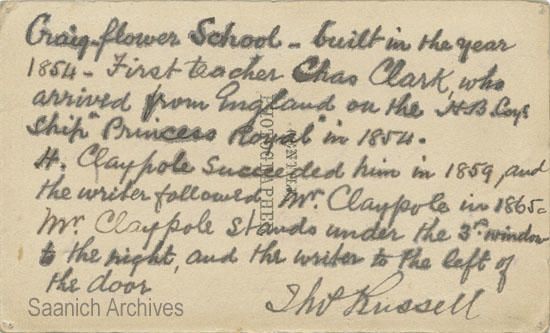 Craigflower School - built in the year
1854 - First teacher Chas Clark, who
arrived from England on the H B Coys
Ship "Princess Royal" in 1854.
H. Claypole Succeeded him in 1859, and
the writer followed Mr. Claypole in 1865 -
Mr. Claypole Stands under the 3rd window
to the right, and the writer to the left of
the door
Thos Russell
PHOTOGRAPHER
Saanich Archives